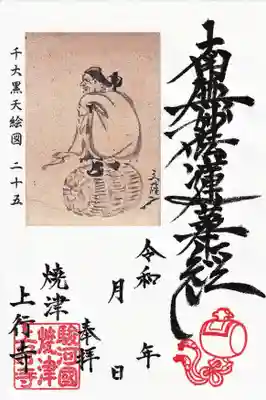 南無妙法蓮華経
令和 年
月 日
奉拝
焼津
上行寺
駿河國
焼津
上行寺
千大黒天絵図 二十五